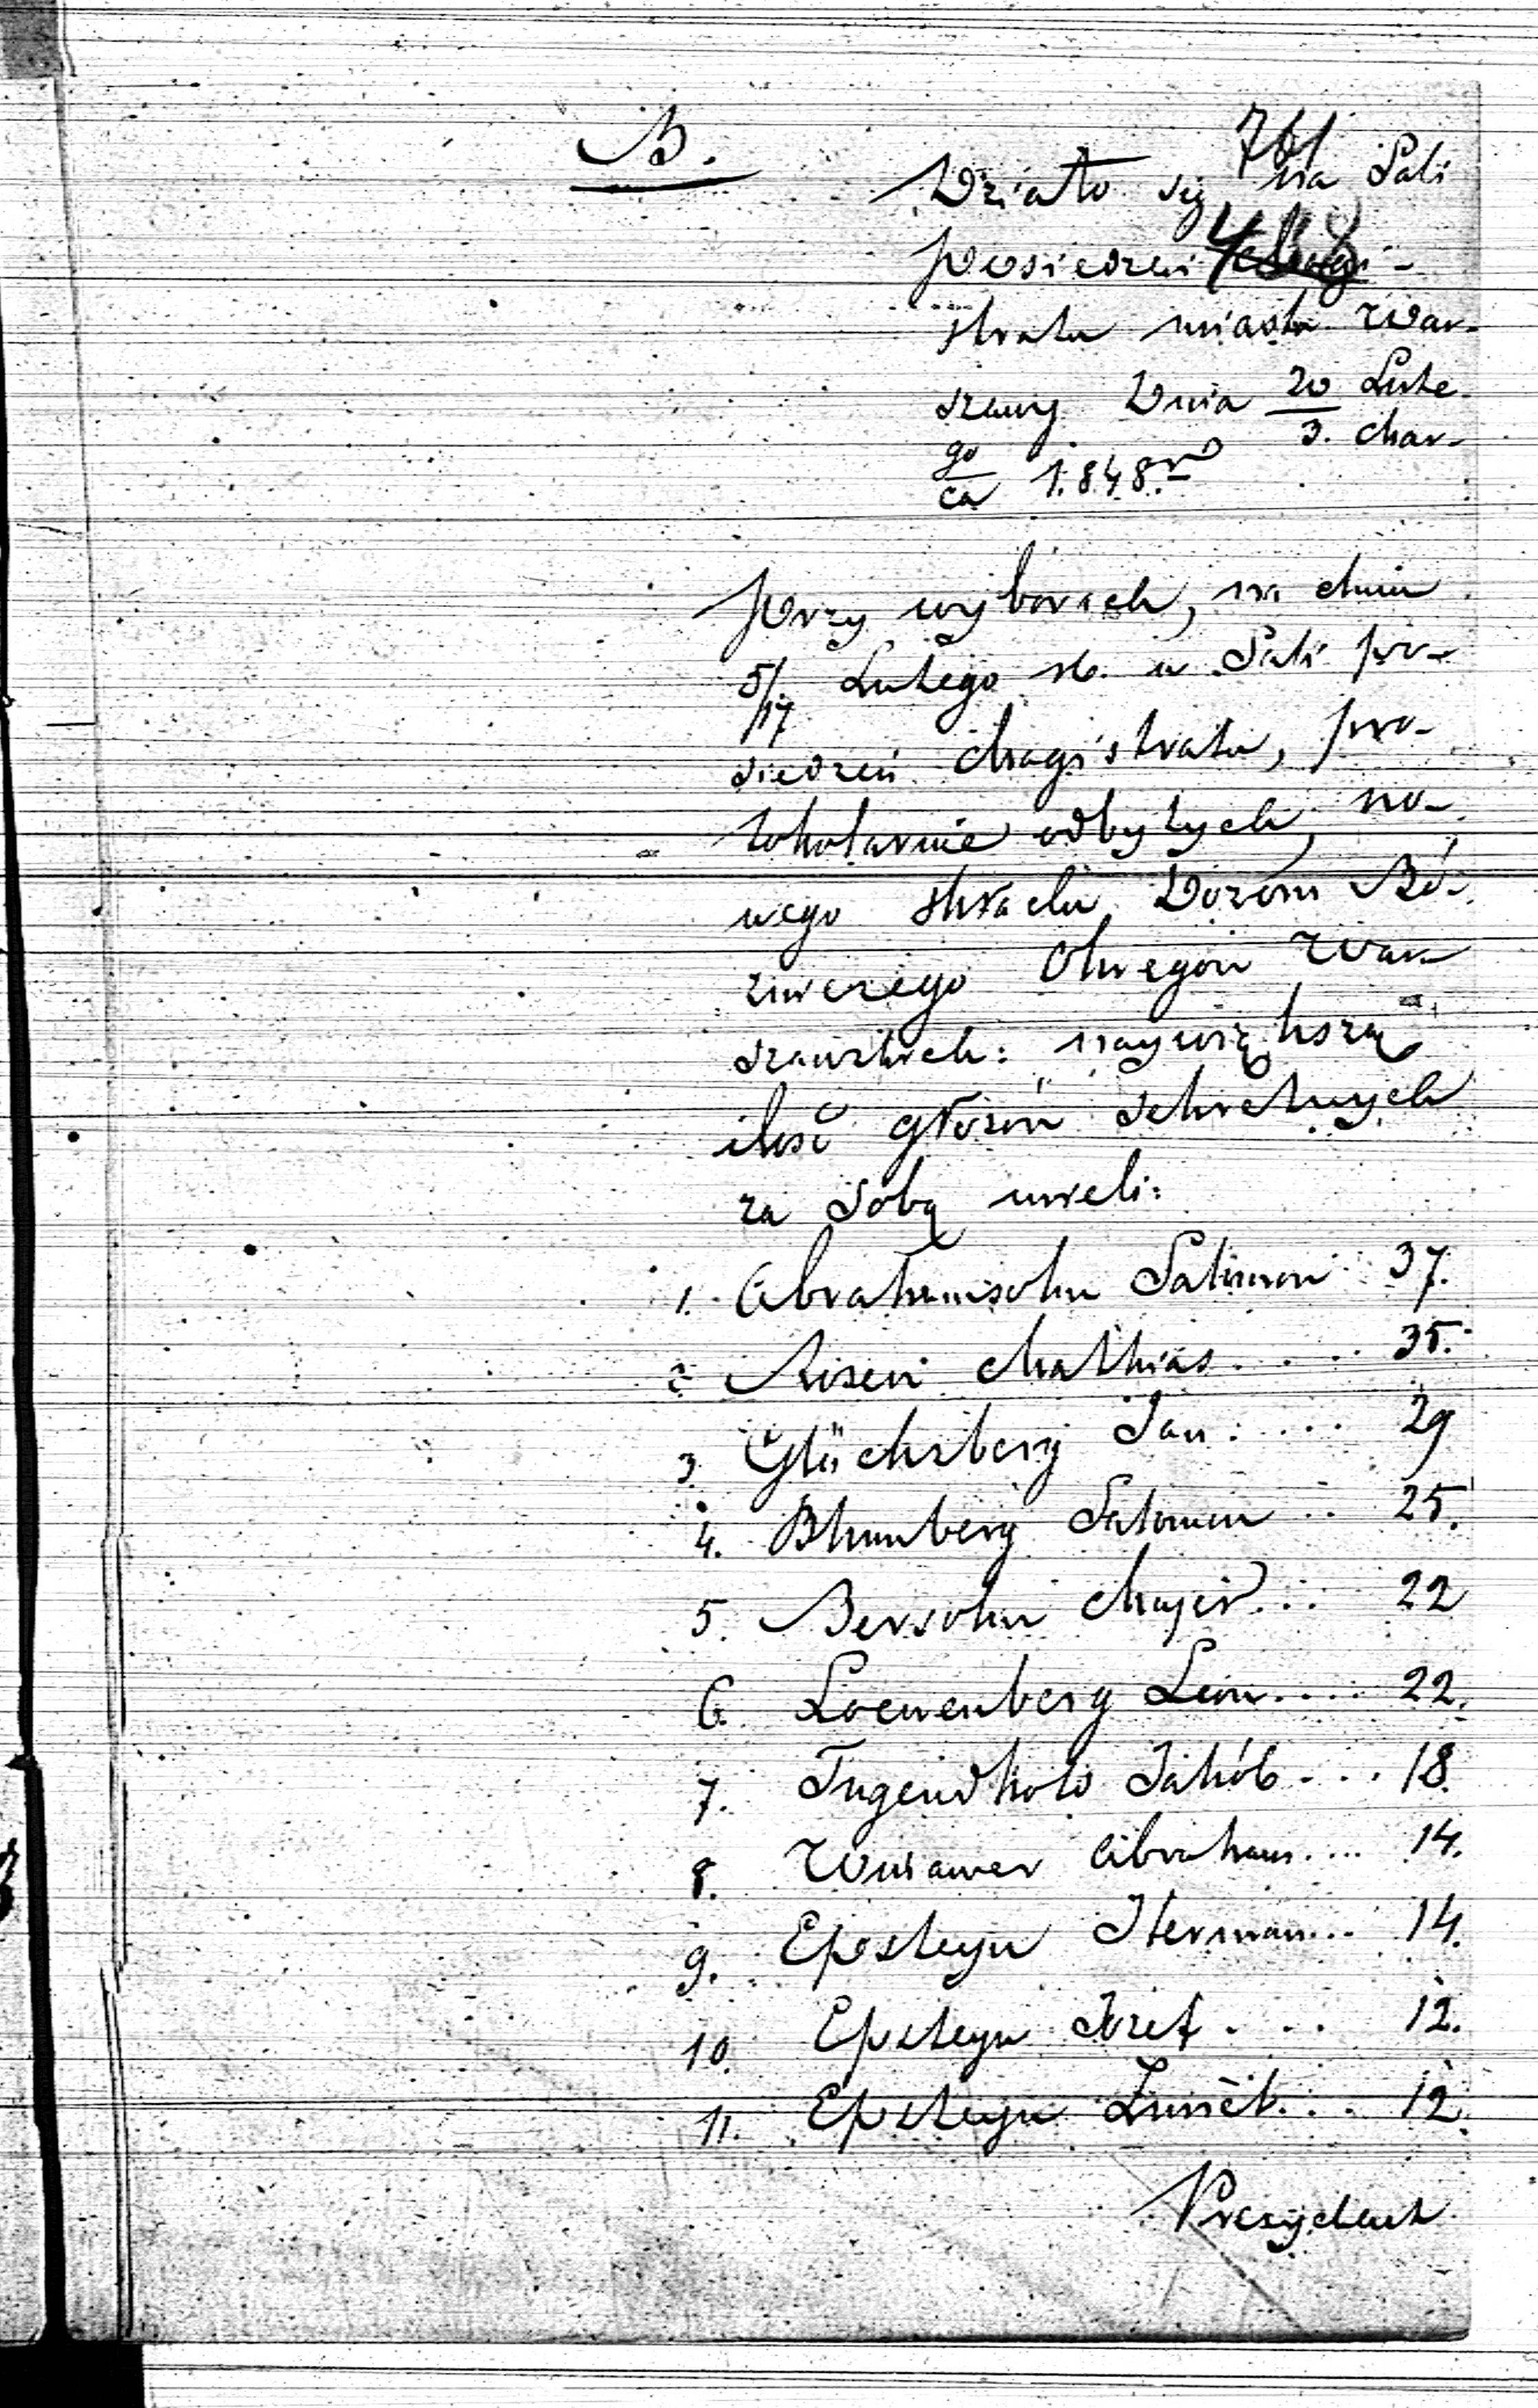 B.
761
Działo się na Sali
posiedzeń Magi-
458
stratu miasta War-
szawy Dnia 20/3. Lute-/Mar-
go/ca 1848 r
Przy wyborach, na dniu
5/17 Lutego rb. w Sali po-
siedzeń Magistratu, pro-
tokolarnie odbytych, no-
wego składu Dozoru Bó-
żniczego Okręgów War-
szawskich: naywiększą
ilość głosów sekretnych
za sobą mieli:
1. Abrahamsohn Salomon 37.
2 Rosen Mathias .... 35.
3. Glücksberg Jan .... 29
4. Blumberg Salomon .. 25.
5. Bersohn Majer ... 22
6. Loewenberg Leon .... 22.
7. Tugendhold Jakób ... 18.
8. Winawer Abraham .... 14.
9. Epsteyn Herman ... 14.
10. Epsteyn Józef .... 12.
11. Epsteyn Ludwik ... 12.
Prezydent